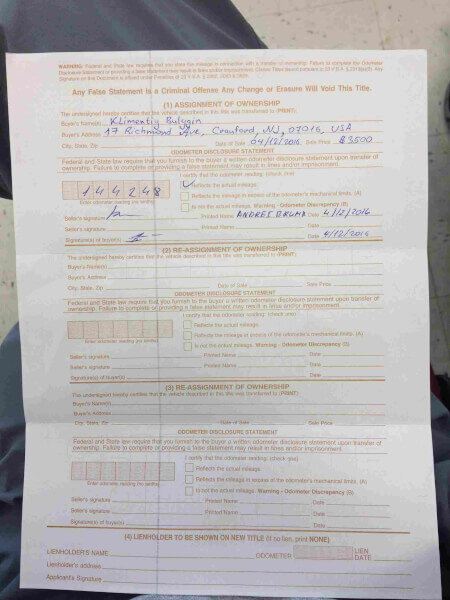 WARNING: Federal and State law requires that you state the mileage in connection with a transfer of ownership. Failure to complete the Odometer
Disclosure Statement or providing a false statement may result in fines and/or imprisonment.
Any False Statement Is a Criminal Offense Any Change or Erasure Will Void This Title.
(1) ASSIGNMENT OF OWNERSHIP
The undersigned hereby certifies that the vehicle described in this title was transferred to (PRINT):
Buyer's Name(s) Klimentiy Bulygin
Buyer's Address 17 Richmond Ave, Cranford, NJ, 07016, USA
City, State, Zip Date of Sale 04/12/2016 Sale Price $3500
ODOMETER DISCLOSURE STATEMENT
Federal and State law require that you furnish to the buyer a written odometer disclosure statement upon transfer of
ownership. Failure to complete or providing a false statement may result in fines and/or imprisonment.
I certify that the odometer reading: (check one)
144248 Reflects the actual mileage.
Reflects the mileage in excess of the odometer's mechanical limits. (A)
Enter odometer reading (no tenths) Is not the actual mileage. Warning - Odometer Discrepancy (B)
Seller's signature Printed Name ANDREI Date 4/12/2016
Seller's signature Printed Name Date
Signature(s) of buyer(s) Date 4/12/2016
(2) RE-ASSIGNMENT OF OWNERSHIP
The undersigned hereby certifies that the vehicle described in this title was transferred to (PRINT)
Buyer's Name(s)
Buyer's Address
City, State, Zip Date of Sale Sale Price
ODOMETER DISCLOSURE STATEMENT
Federal and State law require that you furnish to the buyer a written odometer disclosure statement upon transfer of
ownership. Failure to complete or providing a false statement may result in fines and/or imprisonment.
I certify that the odometer reading: (check one)
Reflects the actual mileage.
Reflects the mileage in excess of the odometer's mechanical limits. (A)
Enter odometer reading (no tenths) Is not the actual mileage. Warning - Odometer Discrepancy (B)
Seller's signature Printed Name Date
Seller's signature Printed Name Date
Signature(s) of buyer(s) Date
(3) RE-ASSIGNMENT OF OWNERSHIP
The undersigned hereby certifies that the vehicle described in this title was transferred to (PRINT)
Buyer's Name(s)
Buyer's Address
City, State, Zip Date of Sale Sale Price
ODOMETER DISCLOSURE STATEMENT
Federal and State law require that you furnish to the buyer a written odometer disclosure statement upon transfer of
ownership. Failure to complete or providing a false statement may result in fines and/or imprisonment.
I certify that the odometer reading: (check one)
Reflects the actual mileage.
Reflects the mileage in excess of the odometer's mechanical limits. (A)
Enter odometer reading (no tenths) Is not the actual mileage. Warning - Odometer Discrepancy (B)
Seller's signature Printed Name Date
Seller's signature Printed Name Date
Signature(s) of buyer(s) Date
(4) LIENHOLDER TO BE SHOWN ON NEW TITLE (If no lien, print NONE)
LIENHOLDER'S NAME ODOMETER LIEN DATE
Lienholder's address
Applicant's Signature